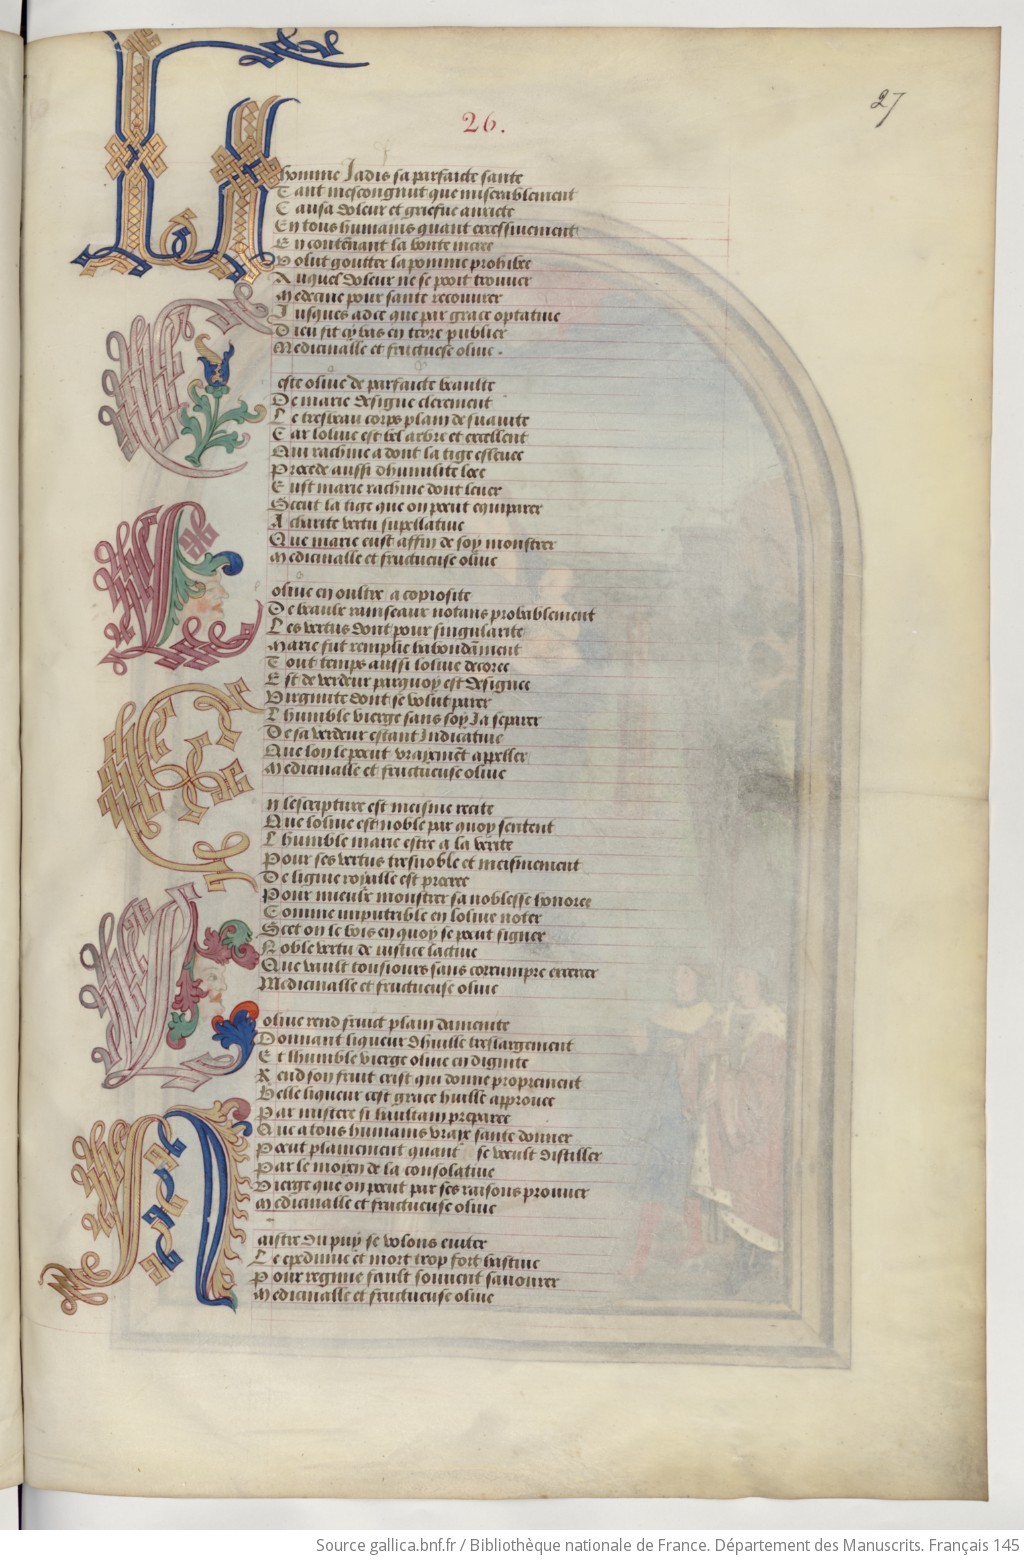 27
26.
Lhomme Jadis sa parfaicte sante
Tant mescongnut que miserablement
Causa doleur et griefue anxiete
En tous humains quant excessiuement
En contēnant la bonte
Volut goutter la pomme prohibee
Auquel doleur ne se pooit trouuer
Medecine pour sante recouurer
Jusques adce que par grace optatiue
Dieu fit cy bas en terre publier
Medicinalle et fructuese oliue .
Ceste oliue de parfaicte beaulte
De marie designe clerement
Le tresbeau corps plain de suauite
Car loliue est bel arbre et excellent
Qui rachine a dont la tige esleuee
Procede aussi dhumilite loee
Eust marie rachine dont leuer
Sceut la tige que on poeut equiparer
A charite vertu supellatiue
Que marie eust affin de soy monstrer
Medicinalle et fructueuse oliue
Loliue en oultre a copiosite
De beaulx rainseaux notans probablement
Les vertus dont pour singularite
Marie fut remplie habondāment
Tout temps aussi loliue decoree
Est de verdeur parquoy est designee
Virginite dont se volut parer
Lhumble vierge sans soy Ja separer
De sa verdeur estant Indicatiue
Que lon le poeut vrayemēt appeller
Medicinalle et fructueuse oliue
En lescripture est meisme recite
Que loliue est noble par quoy sentent
Lhumble marie estre a la verite
Pour ses vertus tresnoble et meismement
De ligne royalle est procree
Pour mieulx monstrer sa noblesse honoree
Comme imputrible en loliue noter
Scet on le bois en quoy se poeut signer
Noble vertu de iustice lactiue
Que vault tousiours sans corrumpre
Medicinalle et fructueuse oliue
Loliue rend fruict plain damenite
Donnant liqueur dhuille treslargement
Et lhumble vierge oliue en dignite
Rend son fruit crist qui donne proprement
Belle liqueur cest grace huille approuee
Par mistere si haultain preparee
Que a tous humains vraye sante donner
Poeut plainement quant se voeult distiller
Par le moyen de la consolatiue
Vierge que on poeut par ses raisons prouuer
Medicinalle et fructueuse oliue
Maistre du puy se volons euiter
Le et mort trop fort hastiue
Pour regime fault souuent sauourer
Medicinalle et fructueuse oliue
Source gallica.bnf.fr / Bibliothèque nationale de France. Département des Manuscrits. Français 145